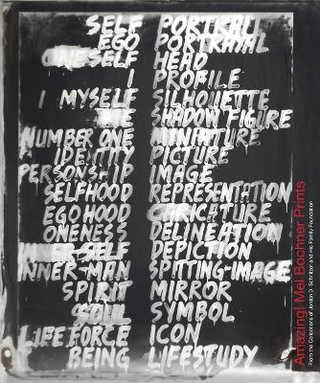 SELF PORTRAIT
EGO PORTRAYAL
ONESELF HEAD
I PROFILE
I MYSELF SILHOUETTE
ME SHADOW FIGURE
NUMBER ONE MINIATURE
IDENTITY PICTURE
PERSONSHIP IMAGE
SELFHOOD REPRESENTATION
EGOHOOD CARICATURE
ONENESS DELINEATION
SELF DEPICTION
INNER-MAN SPITTING-IMAGE
SPIRIT MIRROR
SOUL SYMBOL
LIFE FORCE ICON
BEING LIFESTUDY
Amazing! Mel Bochner Prints
From the Collections of Jordan D. Schnitzer and His Family Foundation